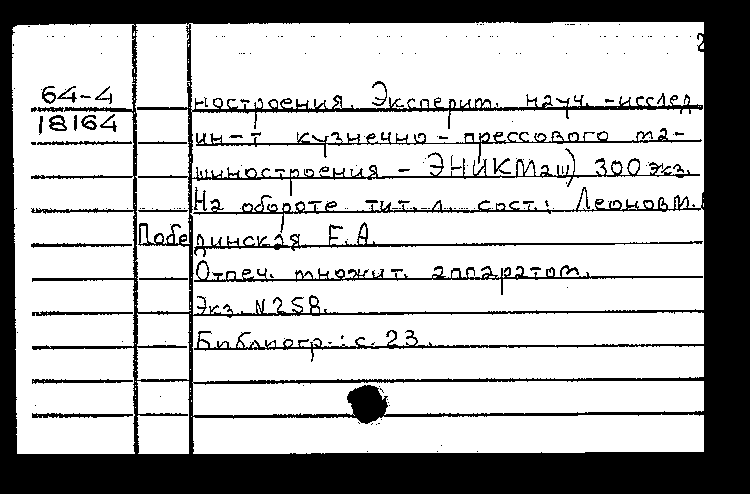 2
64-4
ностроения. Эксперит. науч. -исслед
18164
ин-т кузнечно - прессового ма-
шиностроения - ЭНИКМаш) 300 экз.
На обороте тит. л. сост.: Леонов М.
Побединская Е.А.
Отпеч. множит. аппаратом.
Экз. N 258.
Библиогр.: с. 23.